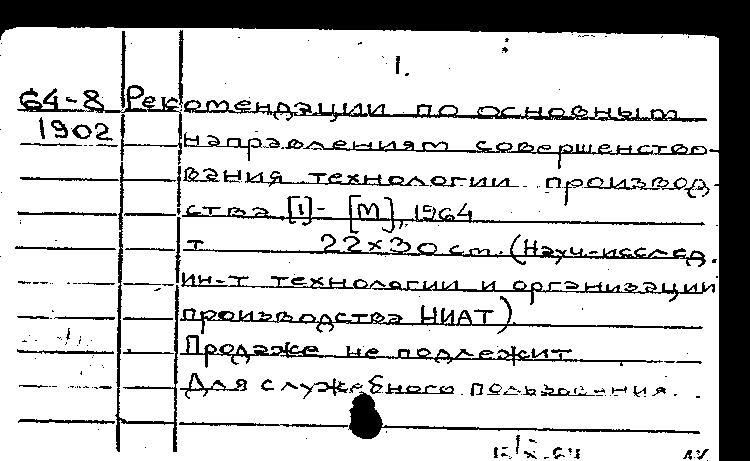 1.
64-8 Рекомендации по основным
1902 направлениям совершенство-
вания технологии производ-
ства [1]- [М], 1964
т 22x30 см. (Науч.-исслед.
ин-т технологии и организации
производства НИАТ)
Продаже не подлежит
Для служебного пользования.